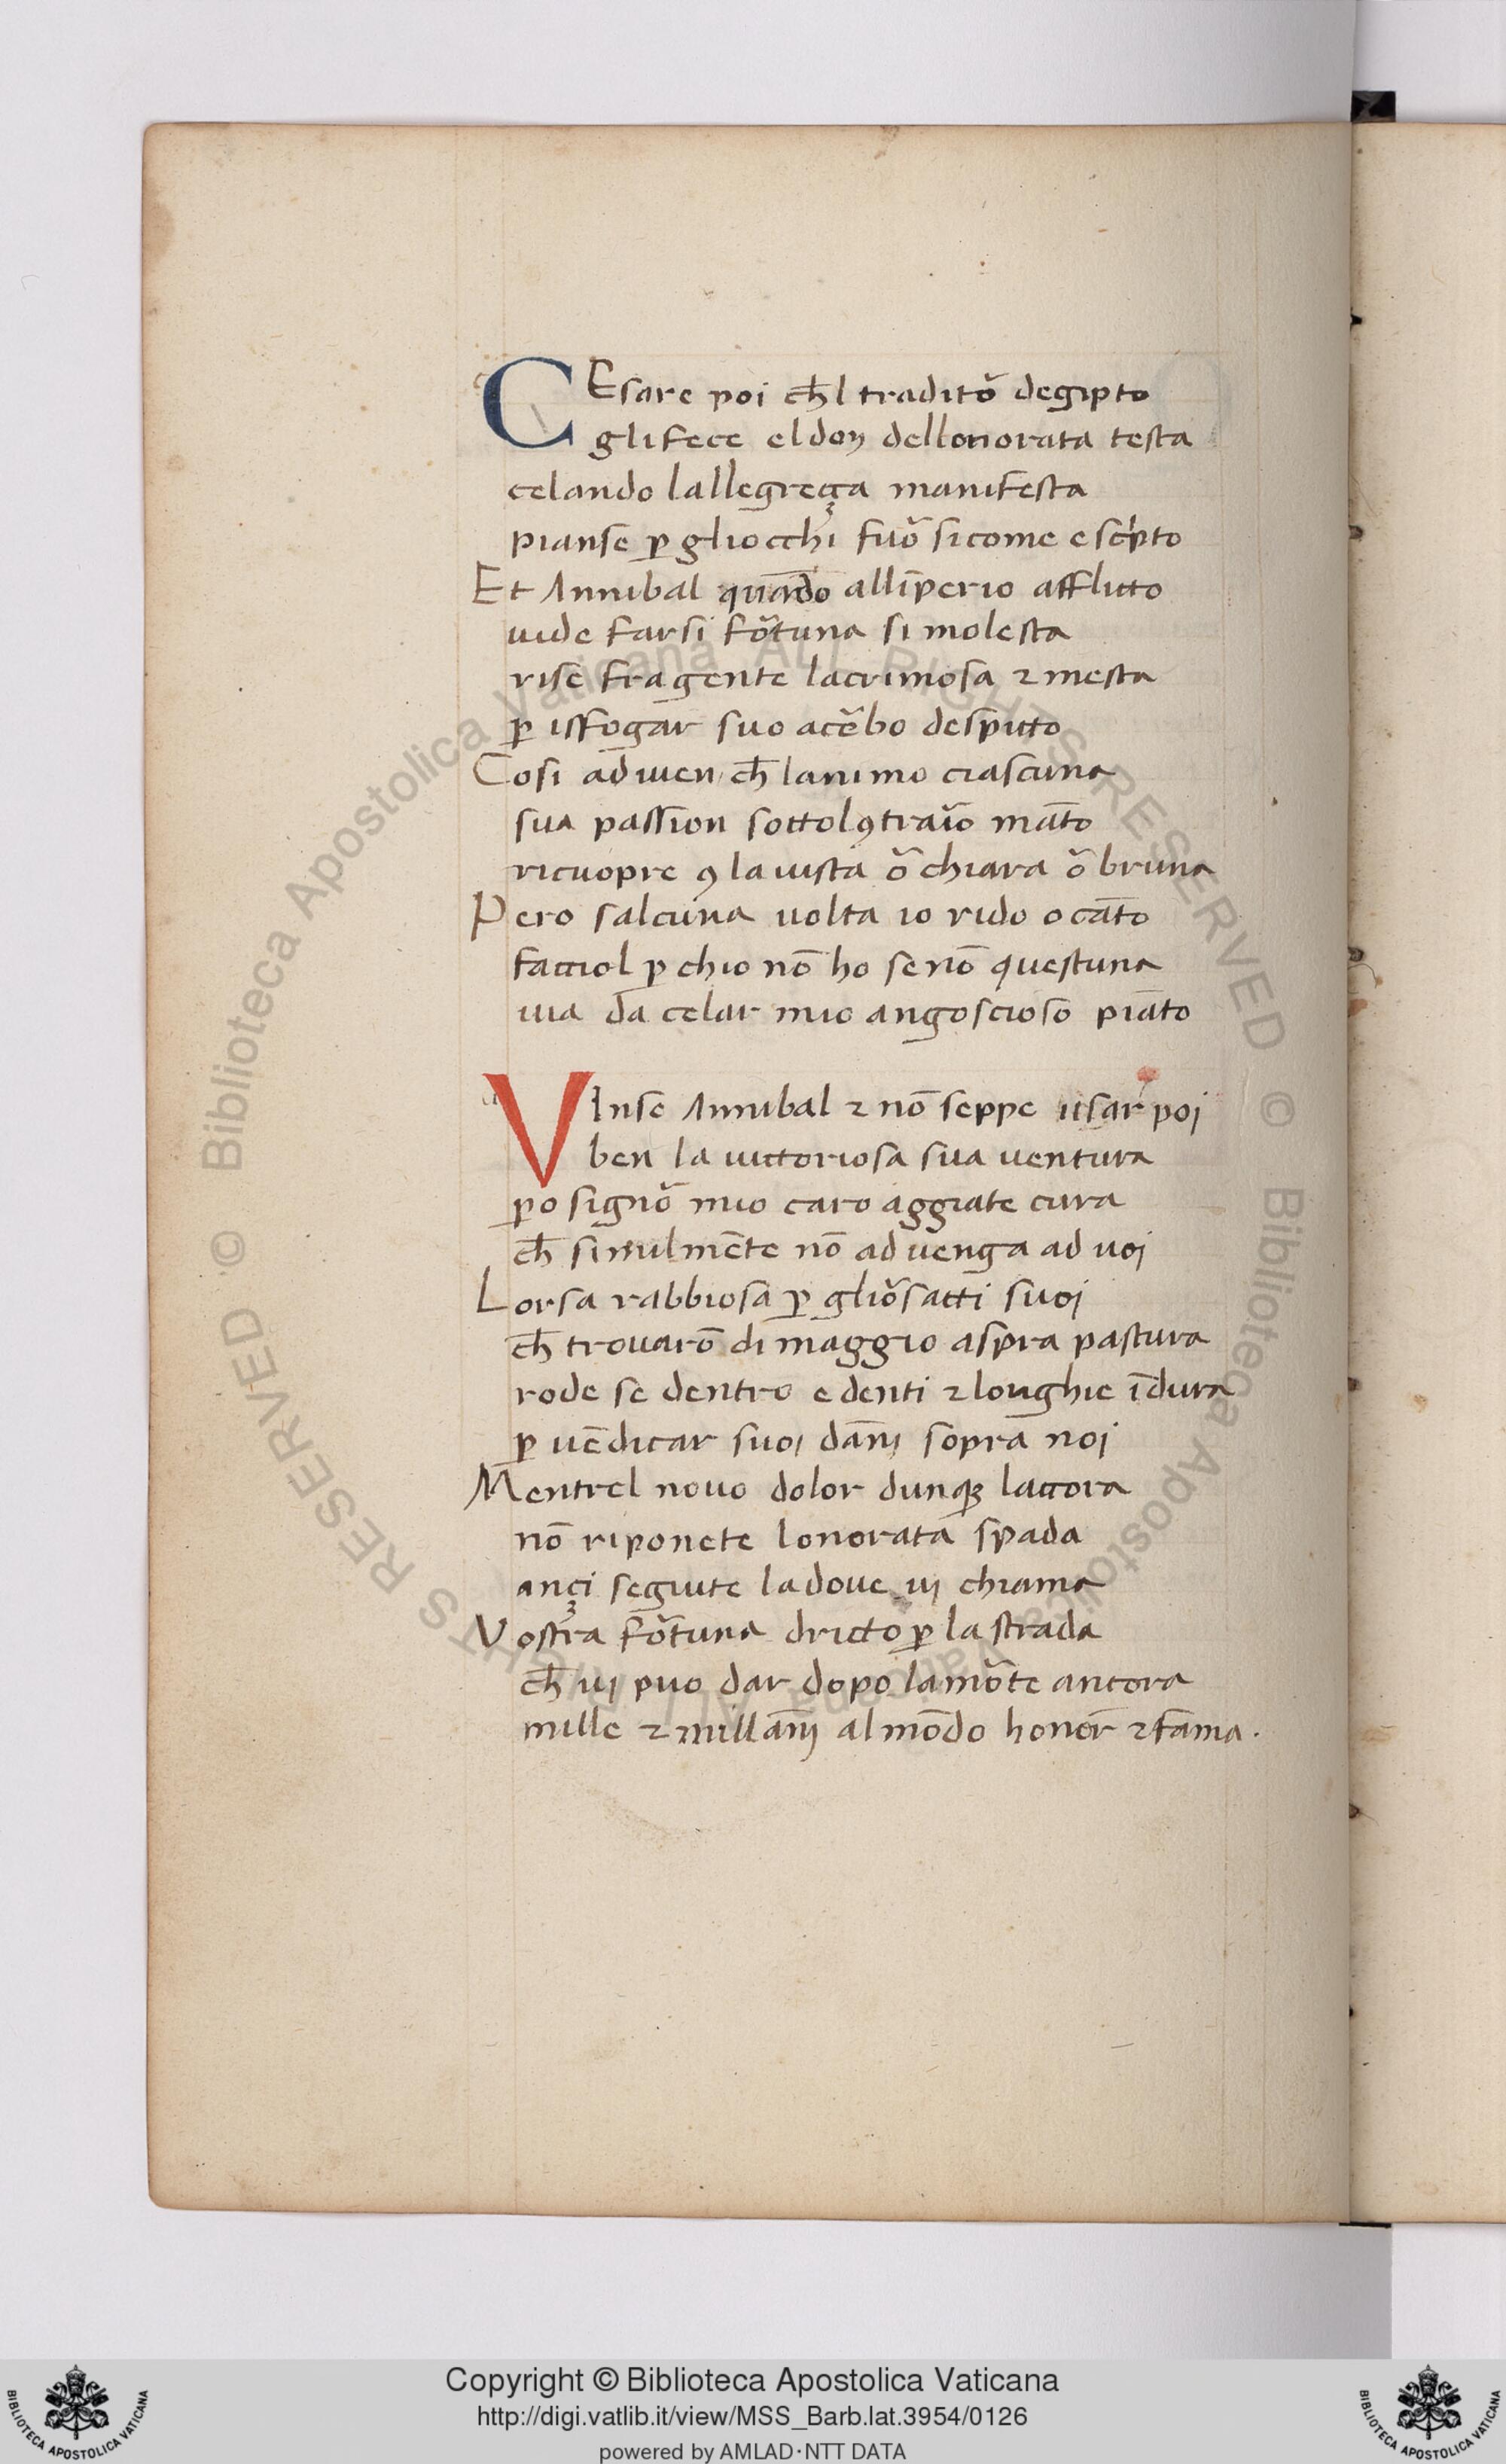 CEsare poi ch̅l tradito᷑ degipto
glifece eldon dellonorata testa
celando lallegreça manifesta
pianse ꝑ gliocchi fuo᷑ sicome e sc͛pto
Et Annibal qua̅do alli̅perio afflitto
uide farsi fo᷑tuna si molesta
rise fra gente lacrimosa ⁊ mesta
ꝑ isfogar suo ac͛bo despitto
Cosi aduien ch̅ lanimo ciascuna
sua passion sottolꝯtraio᷑ ma̅to
ricuopre ꝯ la uista o᷑ chiara o᷑ bruna
Pero salcuna uolta io rido o ca̅to
facciol ꝑ chio no̅ ho se no̅ questuna
uia da celar mio angoscioso pia̅to
VInse Annibal ⁊ no̅ seppe usar poi
ben la uictoriosa sua uentura
ꝑo signo᷑ mio caro aggiate cura
ch̅ similme̅te no̅ aduenga ad uoi
Lorsa rabbiosa ꝑ glio᷑satti suoi
ch̅ trouaro̅ di maggio aspra pastura
rode se dentro e denti ⁊ longhie i̅dura
ꝑ ue̅dicar suoi da̅ni sopra noi
Mentrel nouo dolor dunqꝫ laccora
no̅ riponete lonorata spada
ançi seguite ladoue ui chiama
Vostra fo᷑tuna dricto ꝑ la strada
ch̅ ui puo dar dopo la mo᷑te ancora
mille ⁊ milla̅ni al mo̅do honor ⁊ fama.
© Biblioteca Apostolica Vaticana ALL RIGHTS RESERVED © Biblioteca Apostolica Vaticana ALL RIGHTS RESERVED
Copyright © Biblioteca Apostolica Vaticana
http://digi.vatlib.it/view/MSS_Barb.lat.3954/0126
powered by AMLAD·NTT DATA
BIBLIOTECA APOSTOLICA VATICANA
BIBLIOTECA APOSTOLICA VATICANA